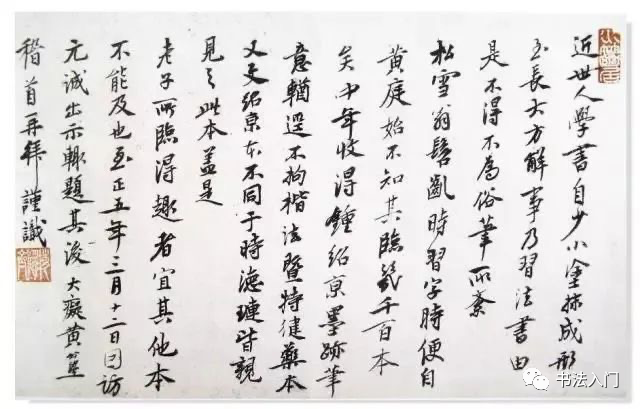 近世人學書自少小塗抹成形
至長大方解事乃習法書由
是不得不為俗筆所紊
松雪翁髫齔時習字時便自
黃庭始不知其臨幾千百本
矣中年收得鍾紹京墨跡筆
意輶逕不拘楷法暨特健藥本
又文紹京本不同于時德璉皆親
見之此本蓋是
老子所臨得趣者宜其他本
不能及也至正五年三月十二日因訪
元誠出示輒題其後大癡黃公望
稽首再拜謹識
书法入门